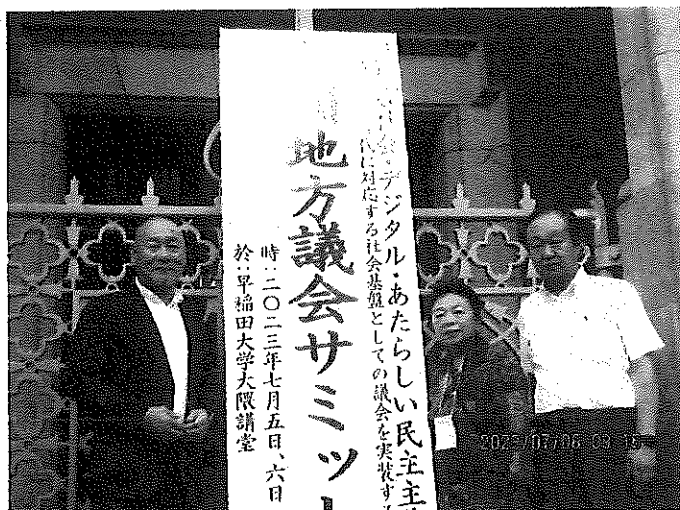 会・デジタル・あたらしい民主主
代に対応する社会基盤としての議会を実装す
地方議会サミット
時：二〇二三年七月五日、六日
於：早稲田大学大隈講堂